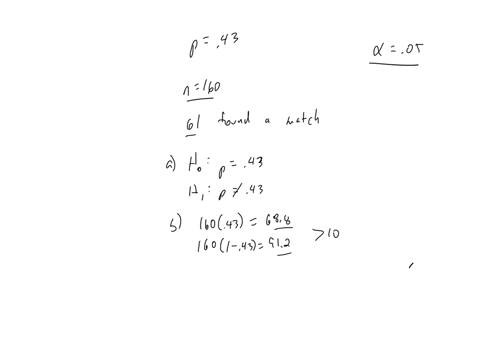 p = .43
α = .05
n = 160
61 found a match
a) H₀: p = .43
H₁: p ≠ .43
b) 160(.43) = 68.8
160(1-.43) = 91.2 >10